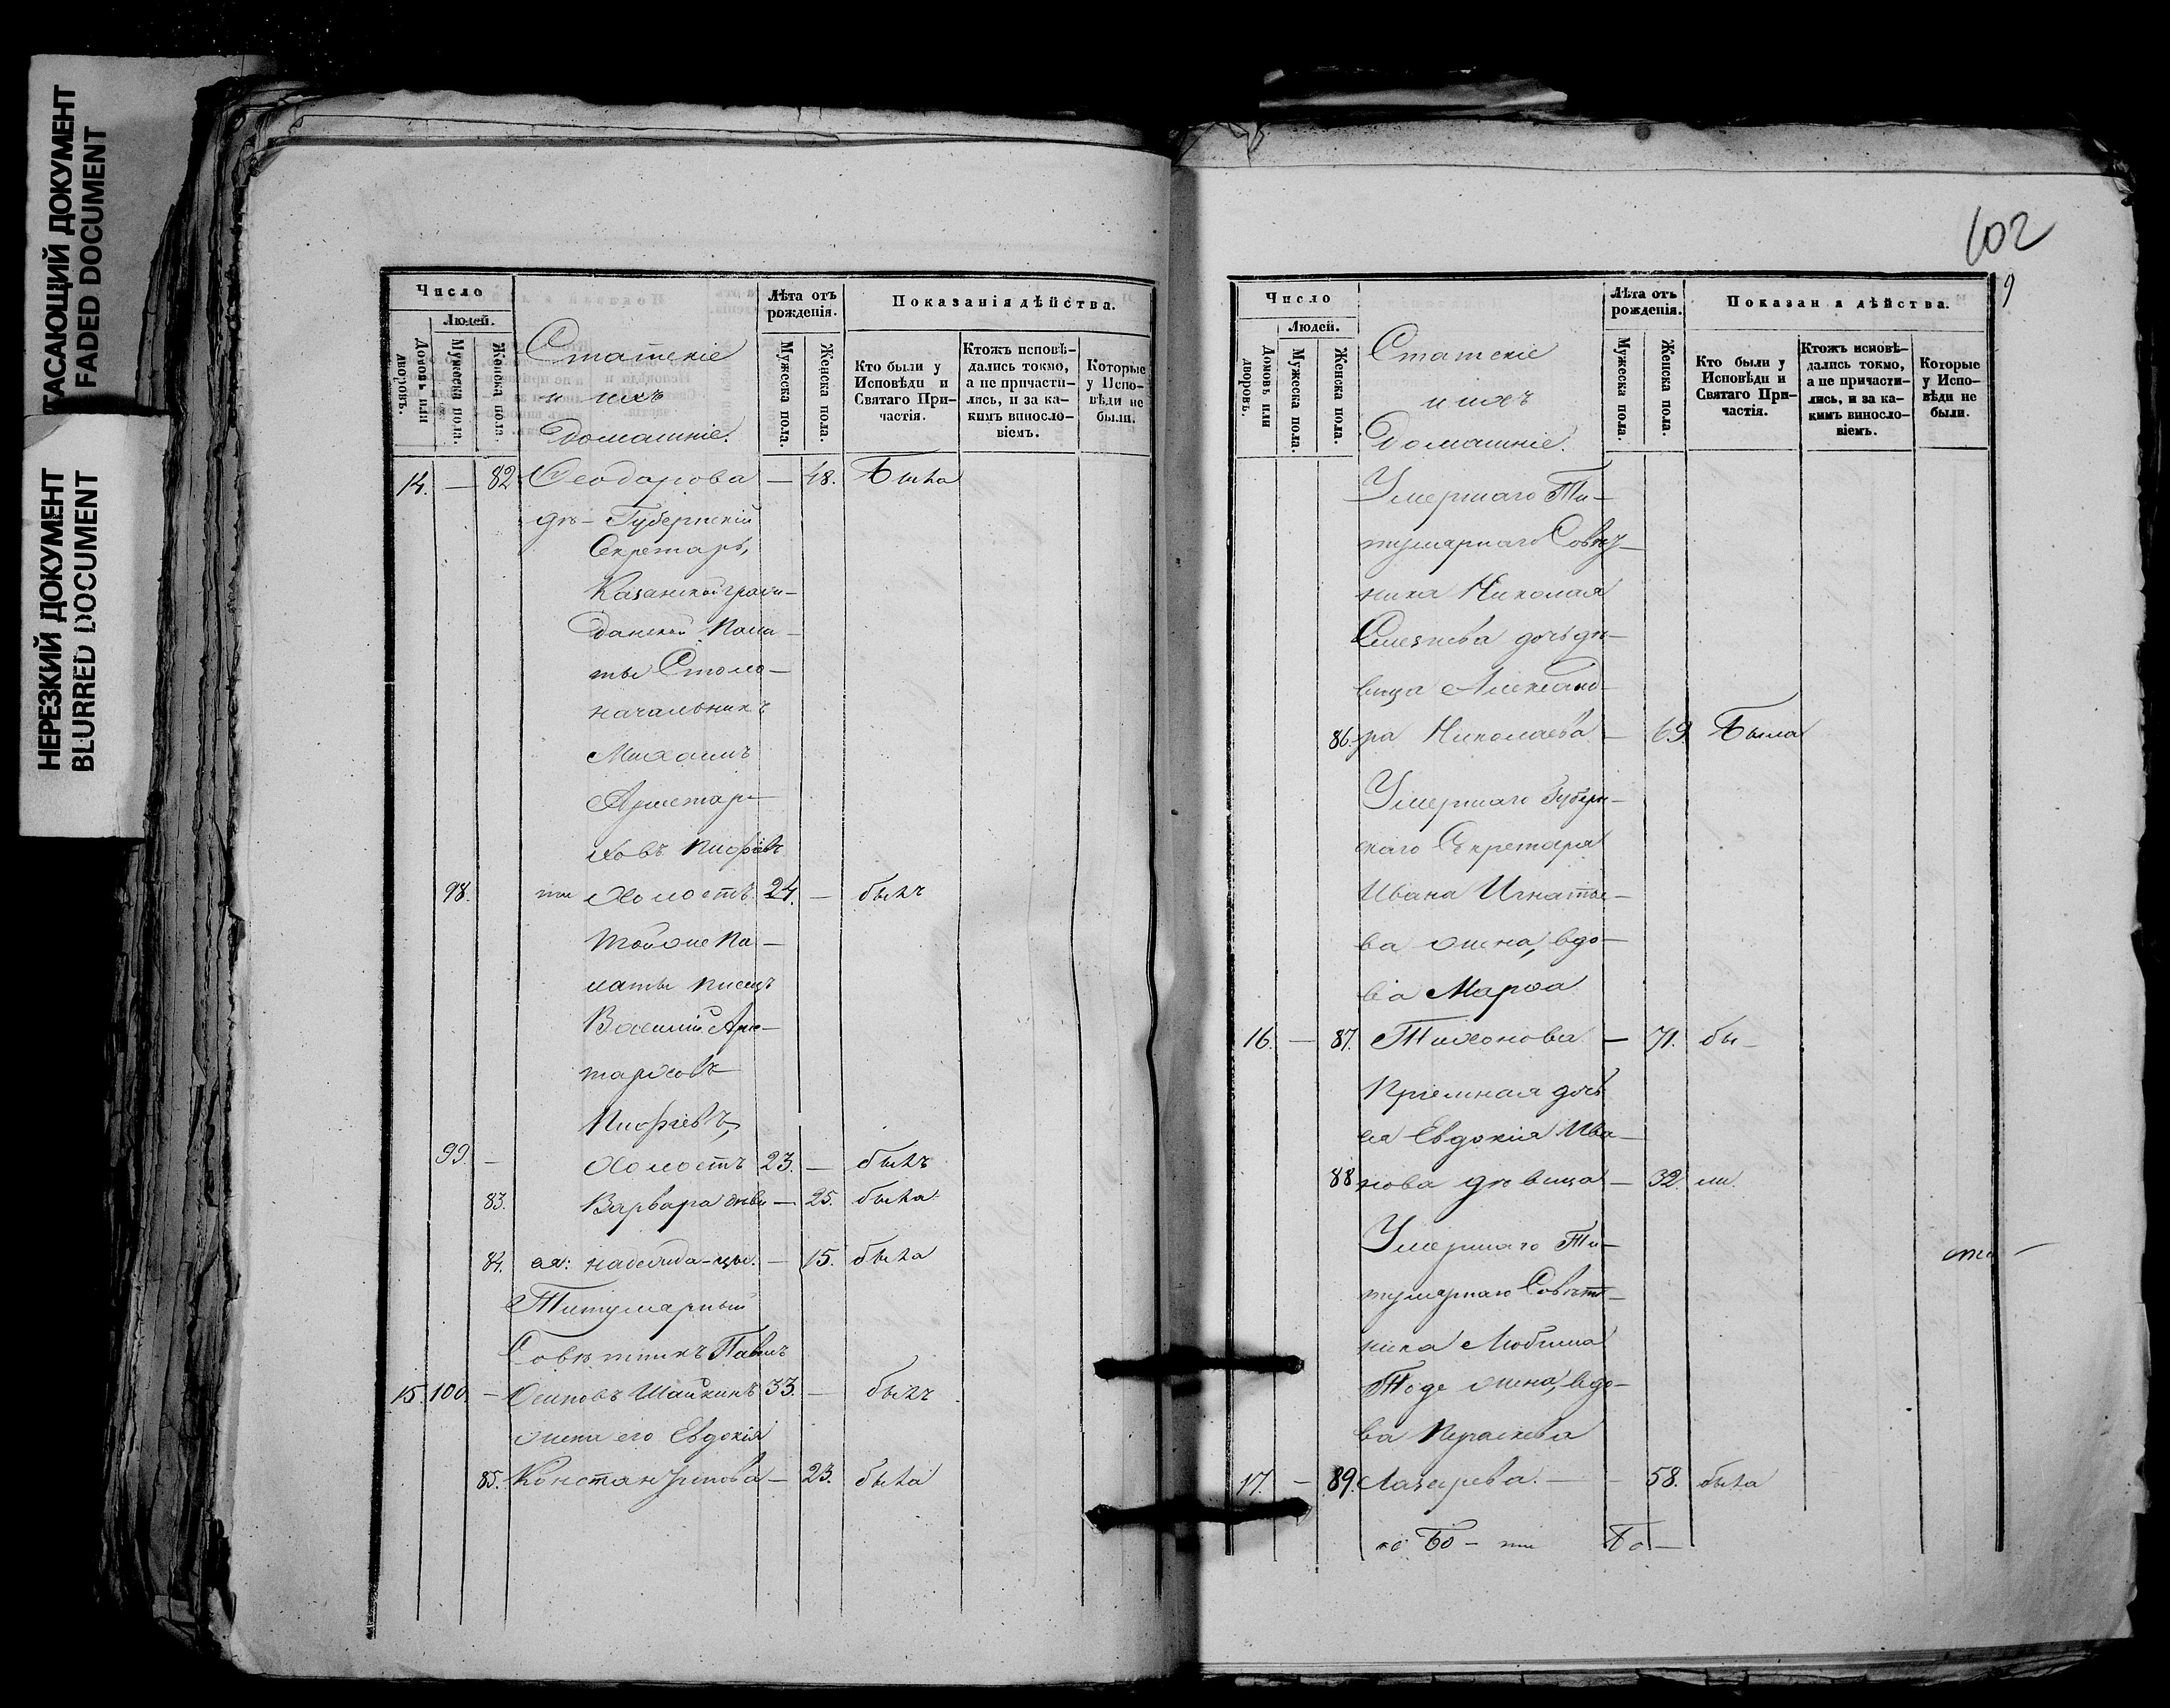 ТАСАЮЩИЙ ДОКУМЕНТ
FADED DOCUMENT
НЕРЕЗКИЙ ДОКУМЕНТ
BLURRED DOCUMENT
Число
Людей.
Домовъ или дворовъ.
Мужеска пола.
Женска пола.
Статскіе
и ихъ
Домашніе.
Лѣта отъ рожденія.
Мужеска пола.
Женска пола.
Показанія дѣйства.
Кто были у
Исповѣди и
Святаго При-
частія.
Ктожъ исповѣ-
дались токмо,
а не причасти-
лись, и за ка-
кимъ винословіемъ.
Которые
у Испо-
вѣди не
были.
14. — 82 Ѳеодорова — 48. Была
дѣ- Губернскій
Секретарь,
Казанской граж-
данской Пала-
ты Столо-
начальникъ
Михаилъ
Аристар-
ховъ
98. ти холостъ 24. — былъ
Тойже Па-
латы писецъ
Василій Арис-
тарховъ
99. — холостъ 23. — былъ
83. Варвара дѣви — 25. была
84. ея: надежда - цы. — 15. была
Титулярный
Совѣтникъ Павелъ
15. 100. — Осиповъ Шайкинъ 33. — былъ
жена его Евдокія
85. Константинова — 23. была
102
9
Число
Людей.
Домовъ или дворовъ.
Мужеска пола.
Женска пола.
Статскіе
и ихъ
Домашніе.
Лѣта отъ рожденія.
Мужеска пола.
Женска пола.
Показан я дѣйства.
Кто были у
Исповѣди и
Святаго При-
частія.
Ктожъ исповѣ-
дались токмо,
а не причасти-
лись, и за ка-
кимъ винословіемъ.
Которые
у Испо-
вѣди не
были.
Умершаго Ти-
тулярнаго Совѣт-
ника Николая
дочь дѣ-
вица Александ-
86. ра Николаева — 69. Была
Умершаго Губерн-
скаго Секретаря
Ивана Игнатье-
ва жена, вдо-
ва Марѳа
16. — 87. Тихонова — 71. бы-
Пріемная дочь
ея Евдокія Ива-
88 нова дѣвица — 32. ли.
Умершаго Ти-
тулярнаго Совѣт-
ника Любима
жена, вдо-
ва
17. — 89. Лазарева. — 58. была